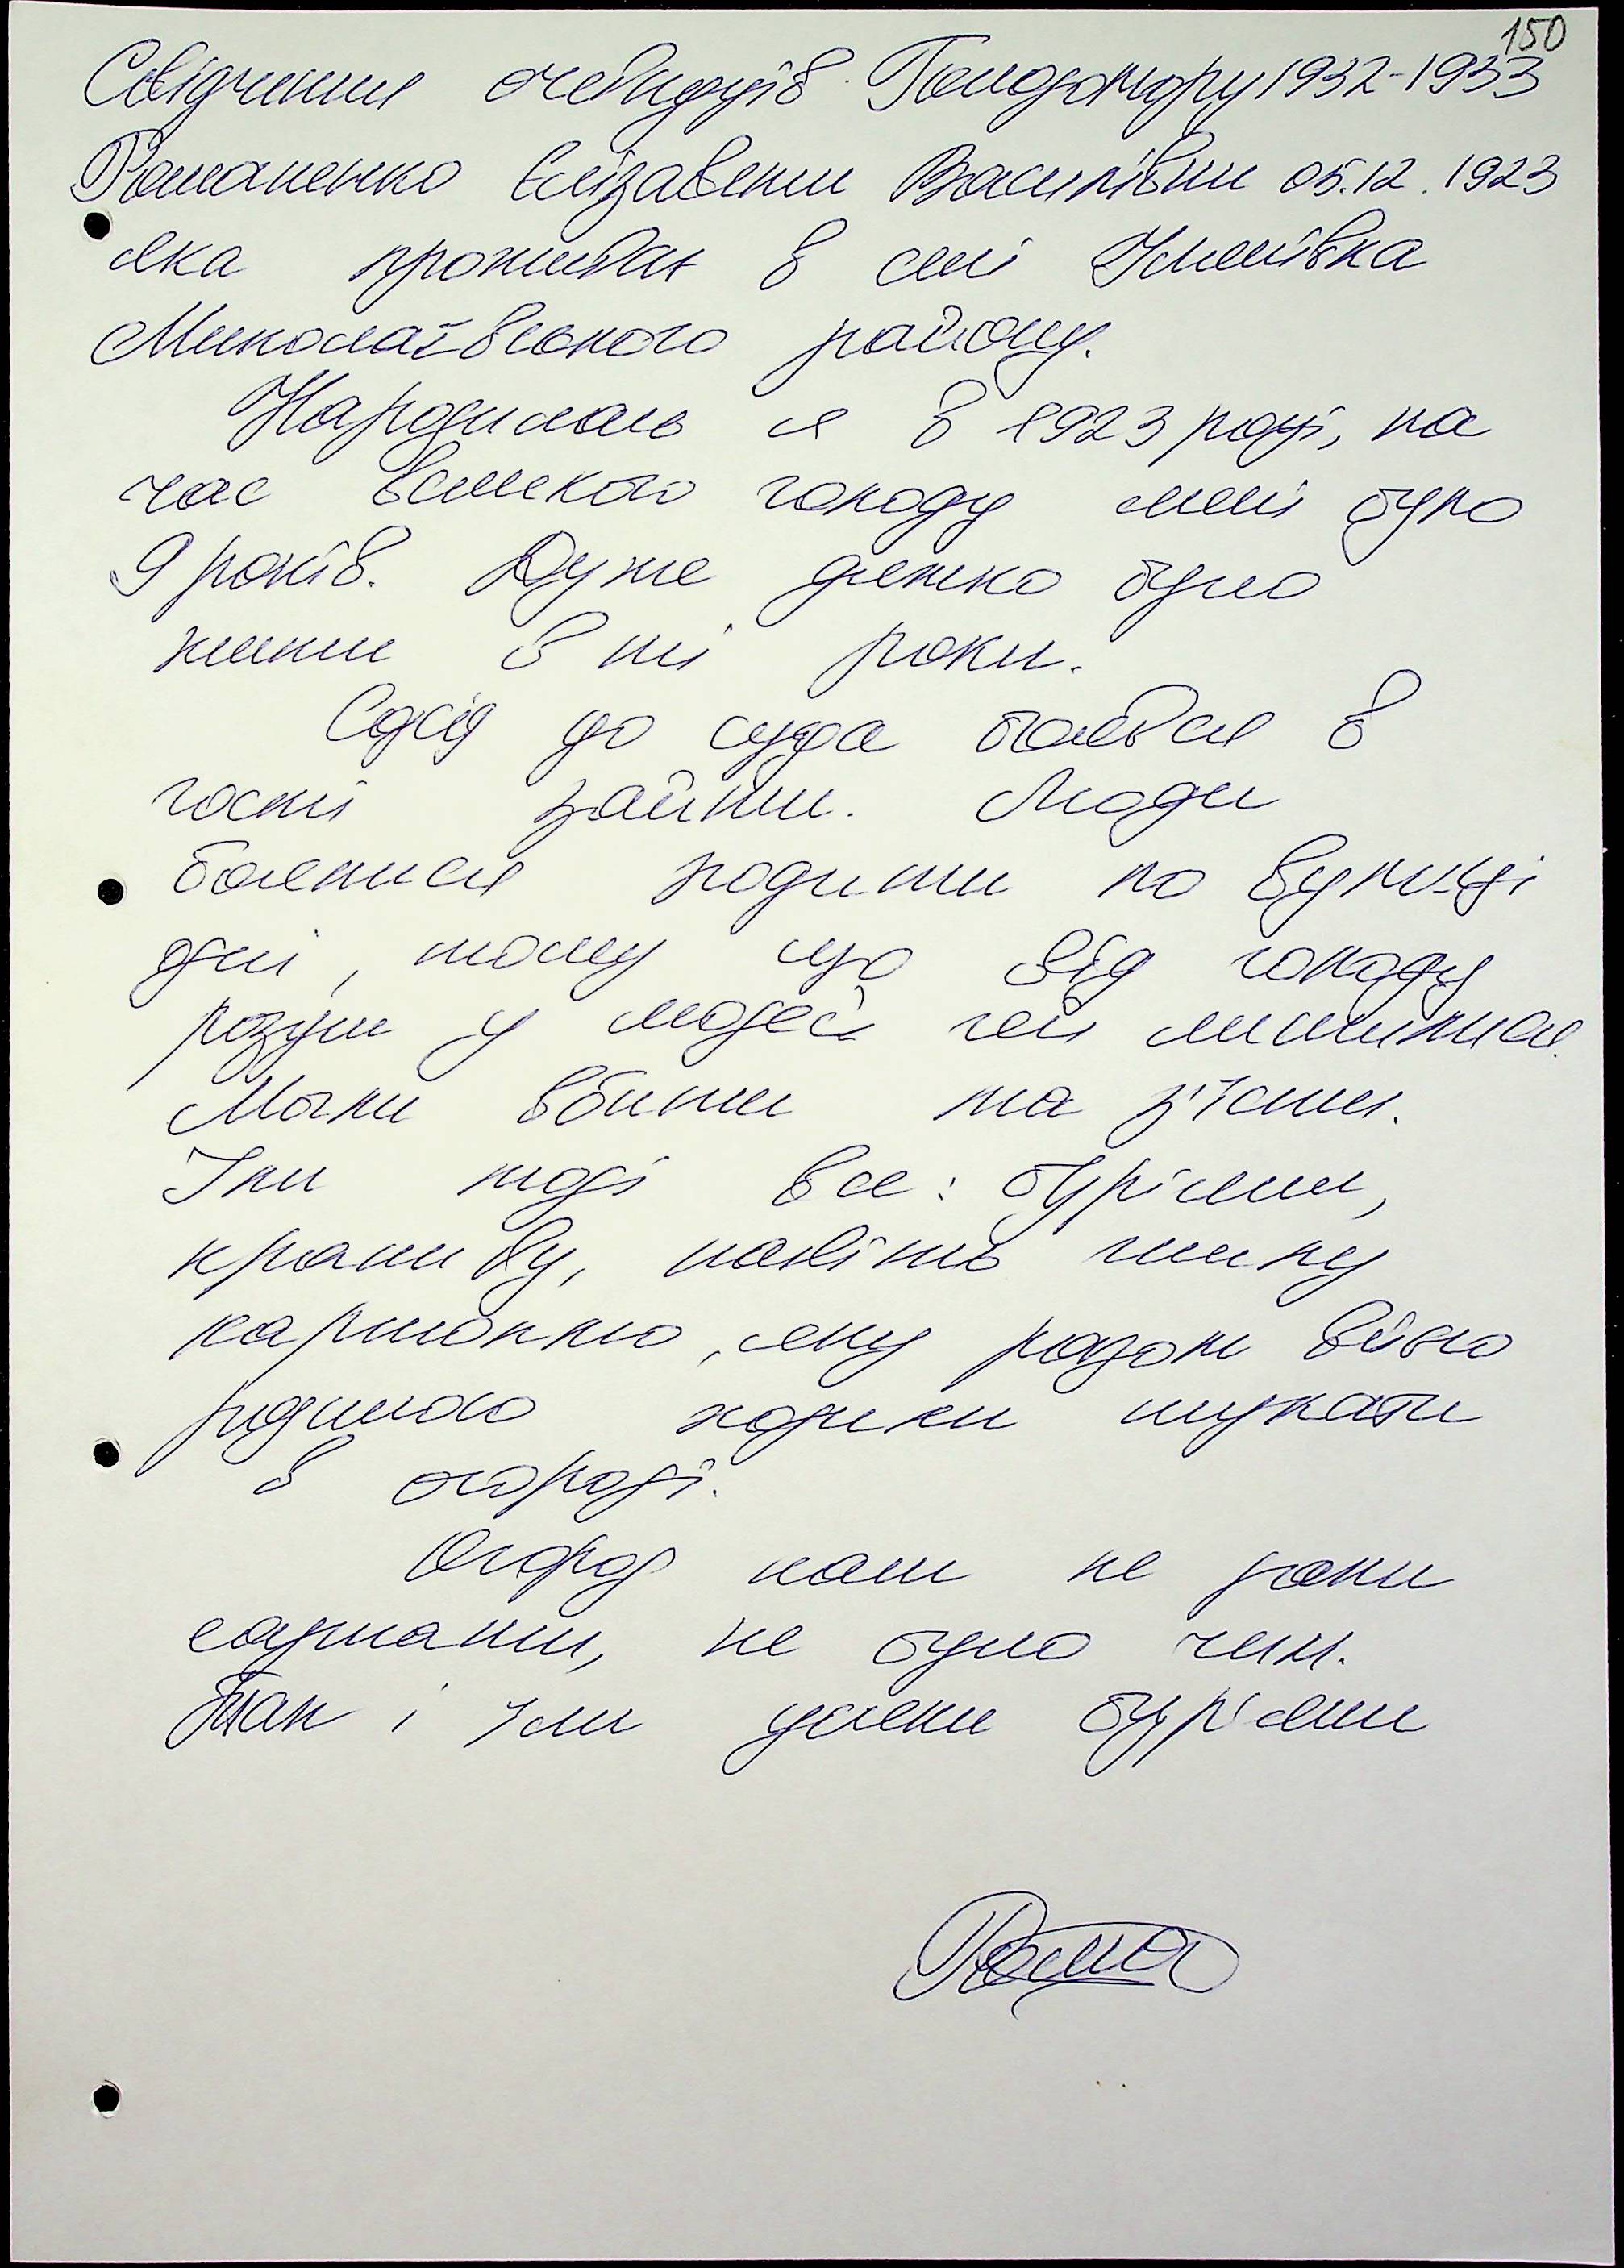 150
Свідчення очевидців Голодомору 1932-1933
Романенко Єлізавети Василівни 05.12.1923
яка проживає в селі Улянівка
Миколаївського району.
Народилась я в 1923 році, на
час великого голоду мені було
9 років. Дуже тяжко було
жити в ті роки.
Сусід до сусіда боявся в
гості зайти. Люди
боялися ходити по вулиці
одні, тому що від голоду
розум у людей геть
Могли вбити та з'їсти.
Їли тоді все: бур'яни,
кропиву, навіть гнилу
картоплю, яку разом всією
родиною ходили шукати
в огороді.
Огород нам не дали
саджати, не було чим.
Так і їли усякі бур'яни